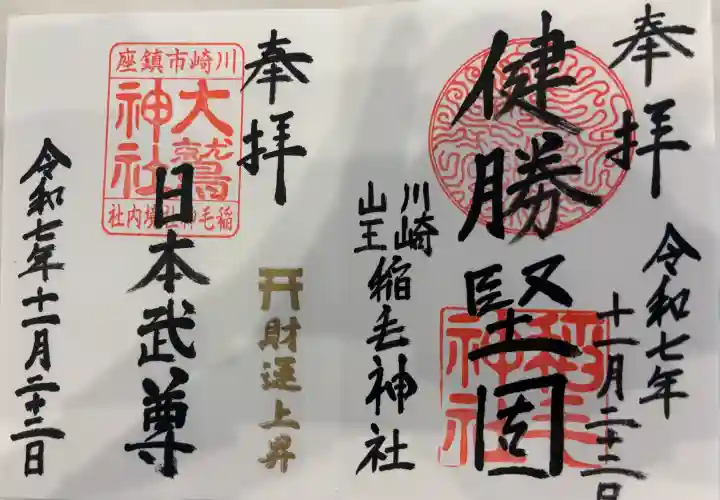 奉拝
令和七年
十一月二十三日
健勝堅固
稲毛神社
川崎
山王
稲毛神社
奉拝
川崎市鎮座
大鷲神社
稲毛神社境内社
日本武尊
財運上昇
令和七年十一月二十三日